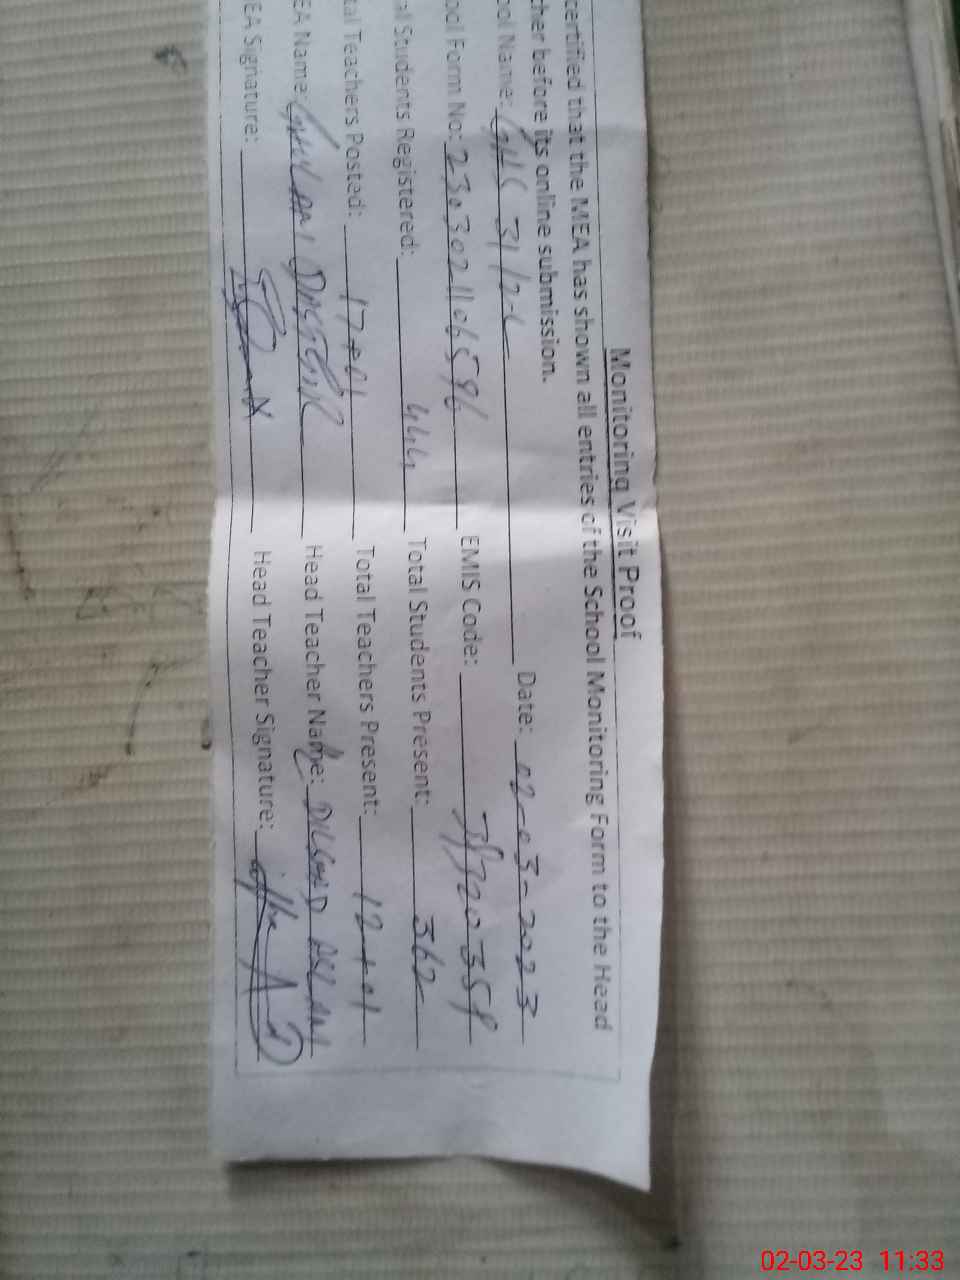 Monitoring Visit Proof
certified that the MEA has shown all entries of the School Monitoring Form to the Head
cher before its online submission.
ool Name: GHS 31/2-L Date: 02-03-2023
ool Form No: 23030211065596 EMIS Code:
al Students Registered: 444 Total Students Present: 362
tal Teachers Posted: 17+01 Total Teachers Present: 12+01
EA Name: GHULAM DASTGIR Head Teacher Name: DILSHAD ASLAM
EA Signature: Head Teacher Signature:
02-03-23 11:33